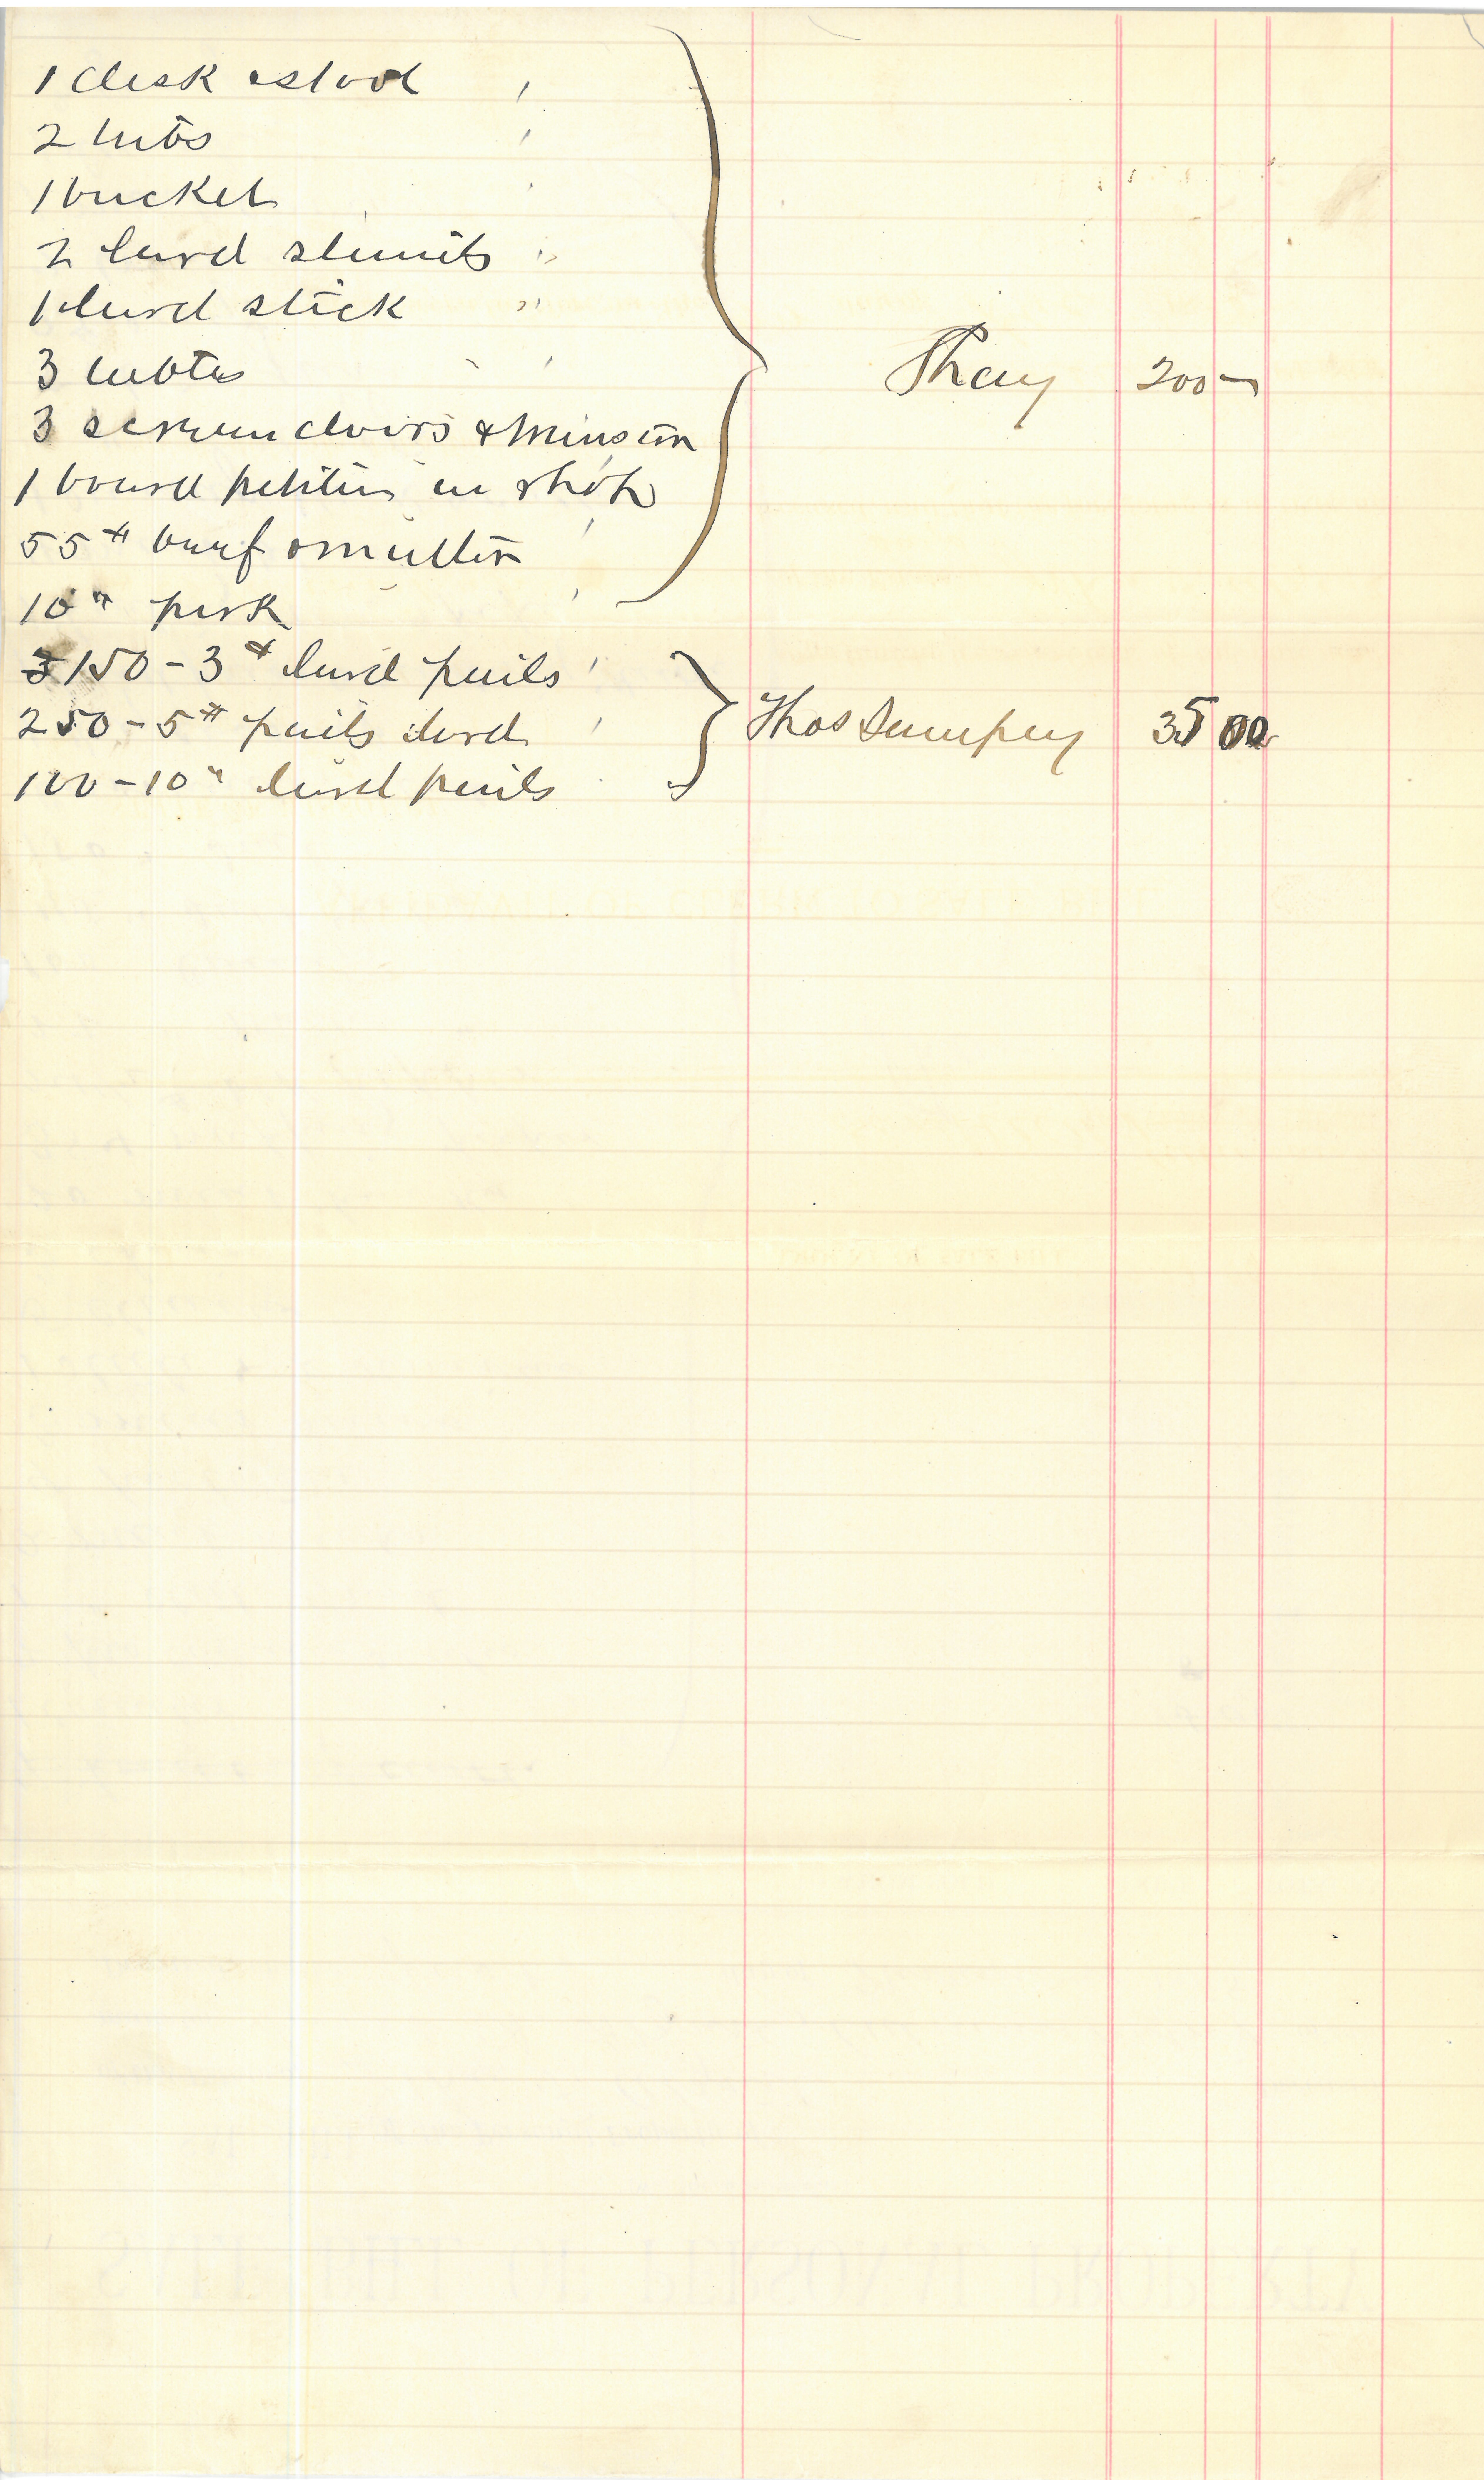 1 desk & stool
2 tubs
1 bucket
2 lard stands
1 lard stick
3 tables
3 screen doors & transom
1 board petition in shop
55# beef & mutton
10 " pork
Shay 200 -
150 - 3# lard pails
250 - 5# pails lard
Thos Dempsey 35 00
100 - 10 " lard pails